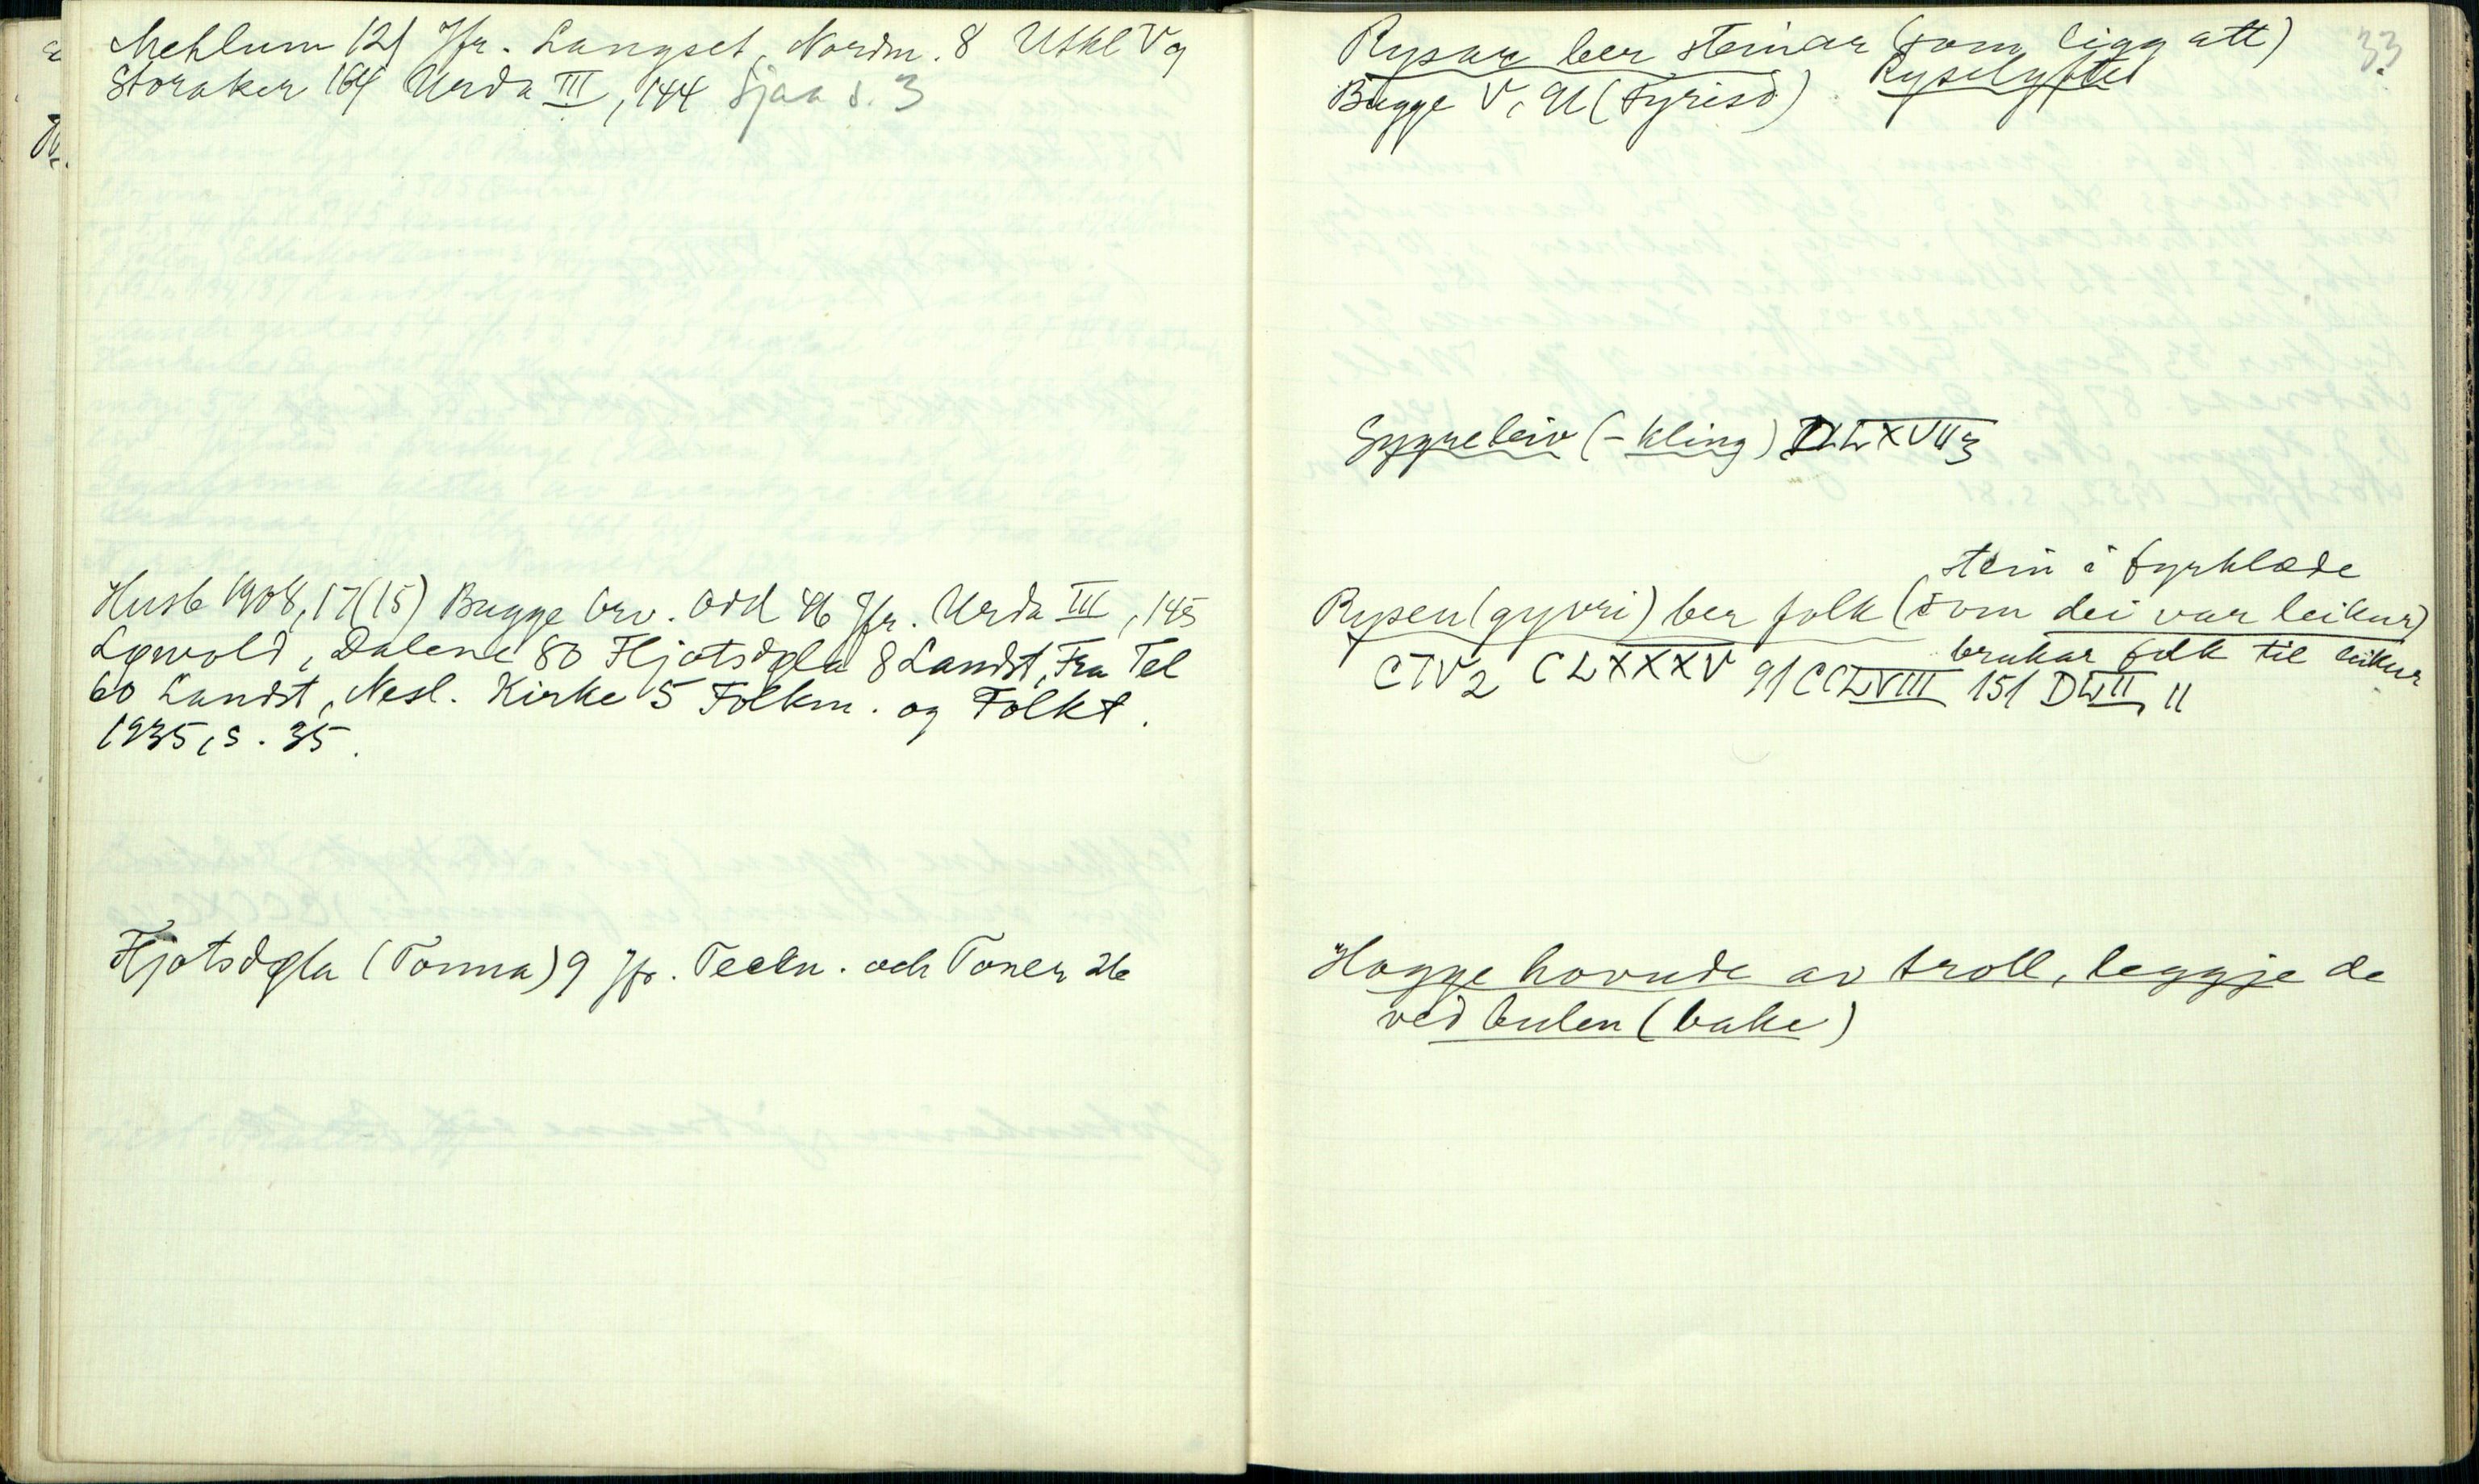 Mehlum 121 Jfr. Langset, Nordm. 8 Utkl V 9
Storaker 164 Urda III, 144 Sjaa s. 3
Husb 1908, 17 (15) Bugge brv. Odd 46 Jfr. Urda III, 145
Løvold, Dalene 80 Fljotsdøla 8 Landst, Fra Tel
60 Landst, Nesl. Kirke 5 Folkm. og Folkt.
1935, s. 35.
Fljotsdøla (Tonna) 9 Jfr. Teckn. och Toner 26
33
Rysar ber steinar (som ligg att)
Ryselyftet
Bugge V, 91 (Fyrisd)
Gygreleiv (-kling) DLXVII 3
stein i fyrklæde
Rysen (gyvri) ber folk (som dei var leikur)
brukar folk til leikur
CIV 2 CLXXXV 91 CCLVIII 151 DLII 11
Hogge hovude av troll, leggje de
ved bulen (bake)